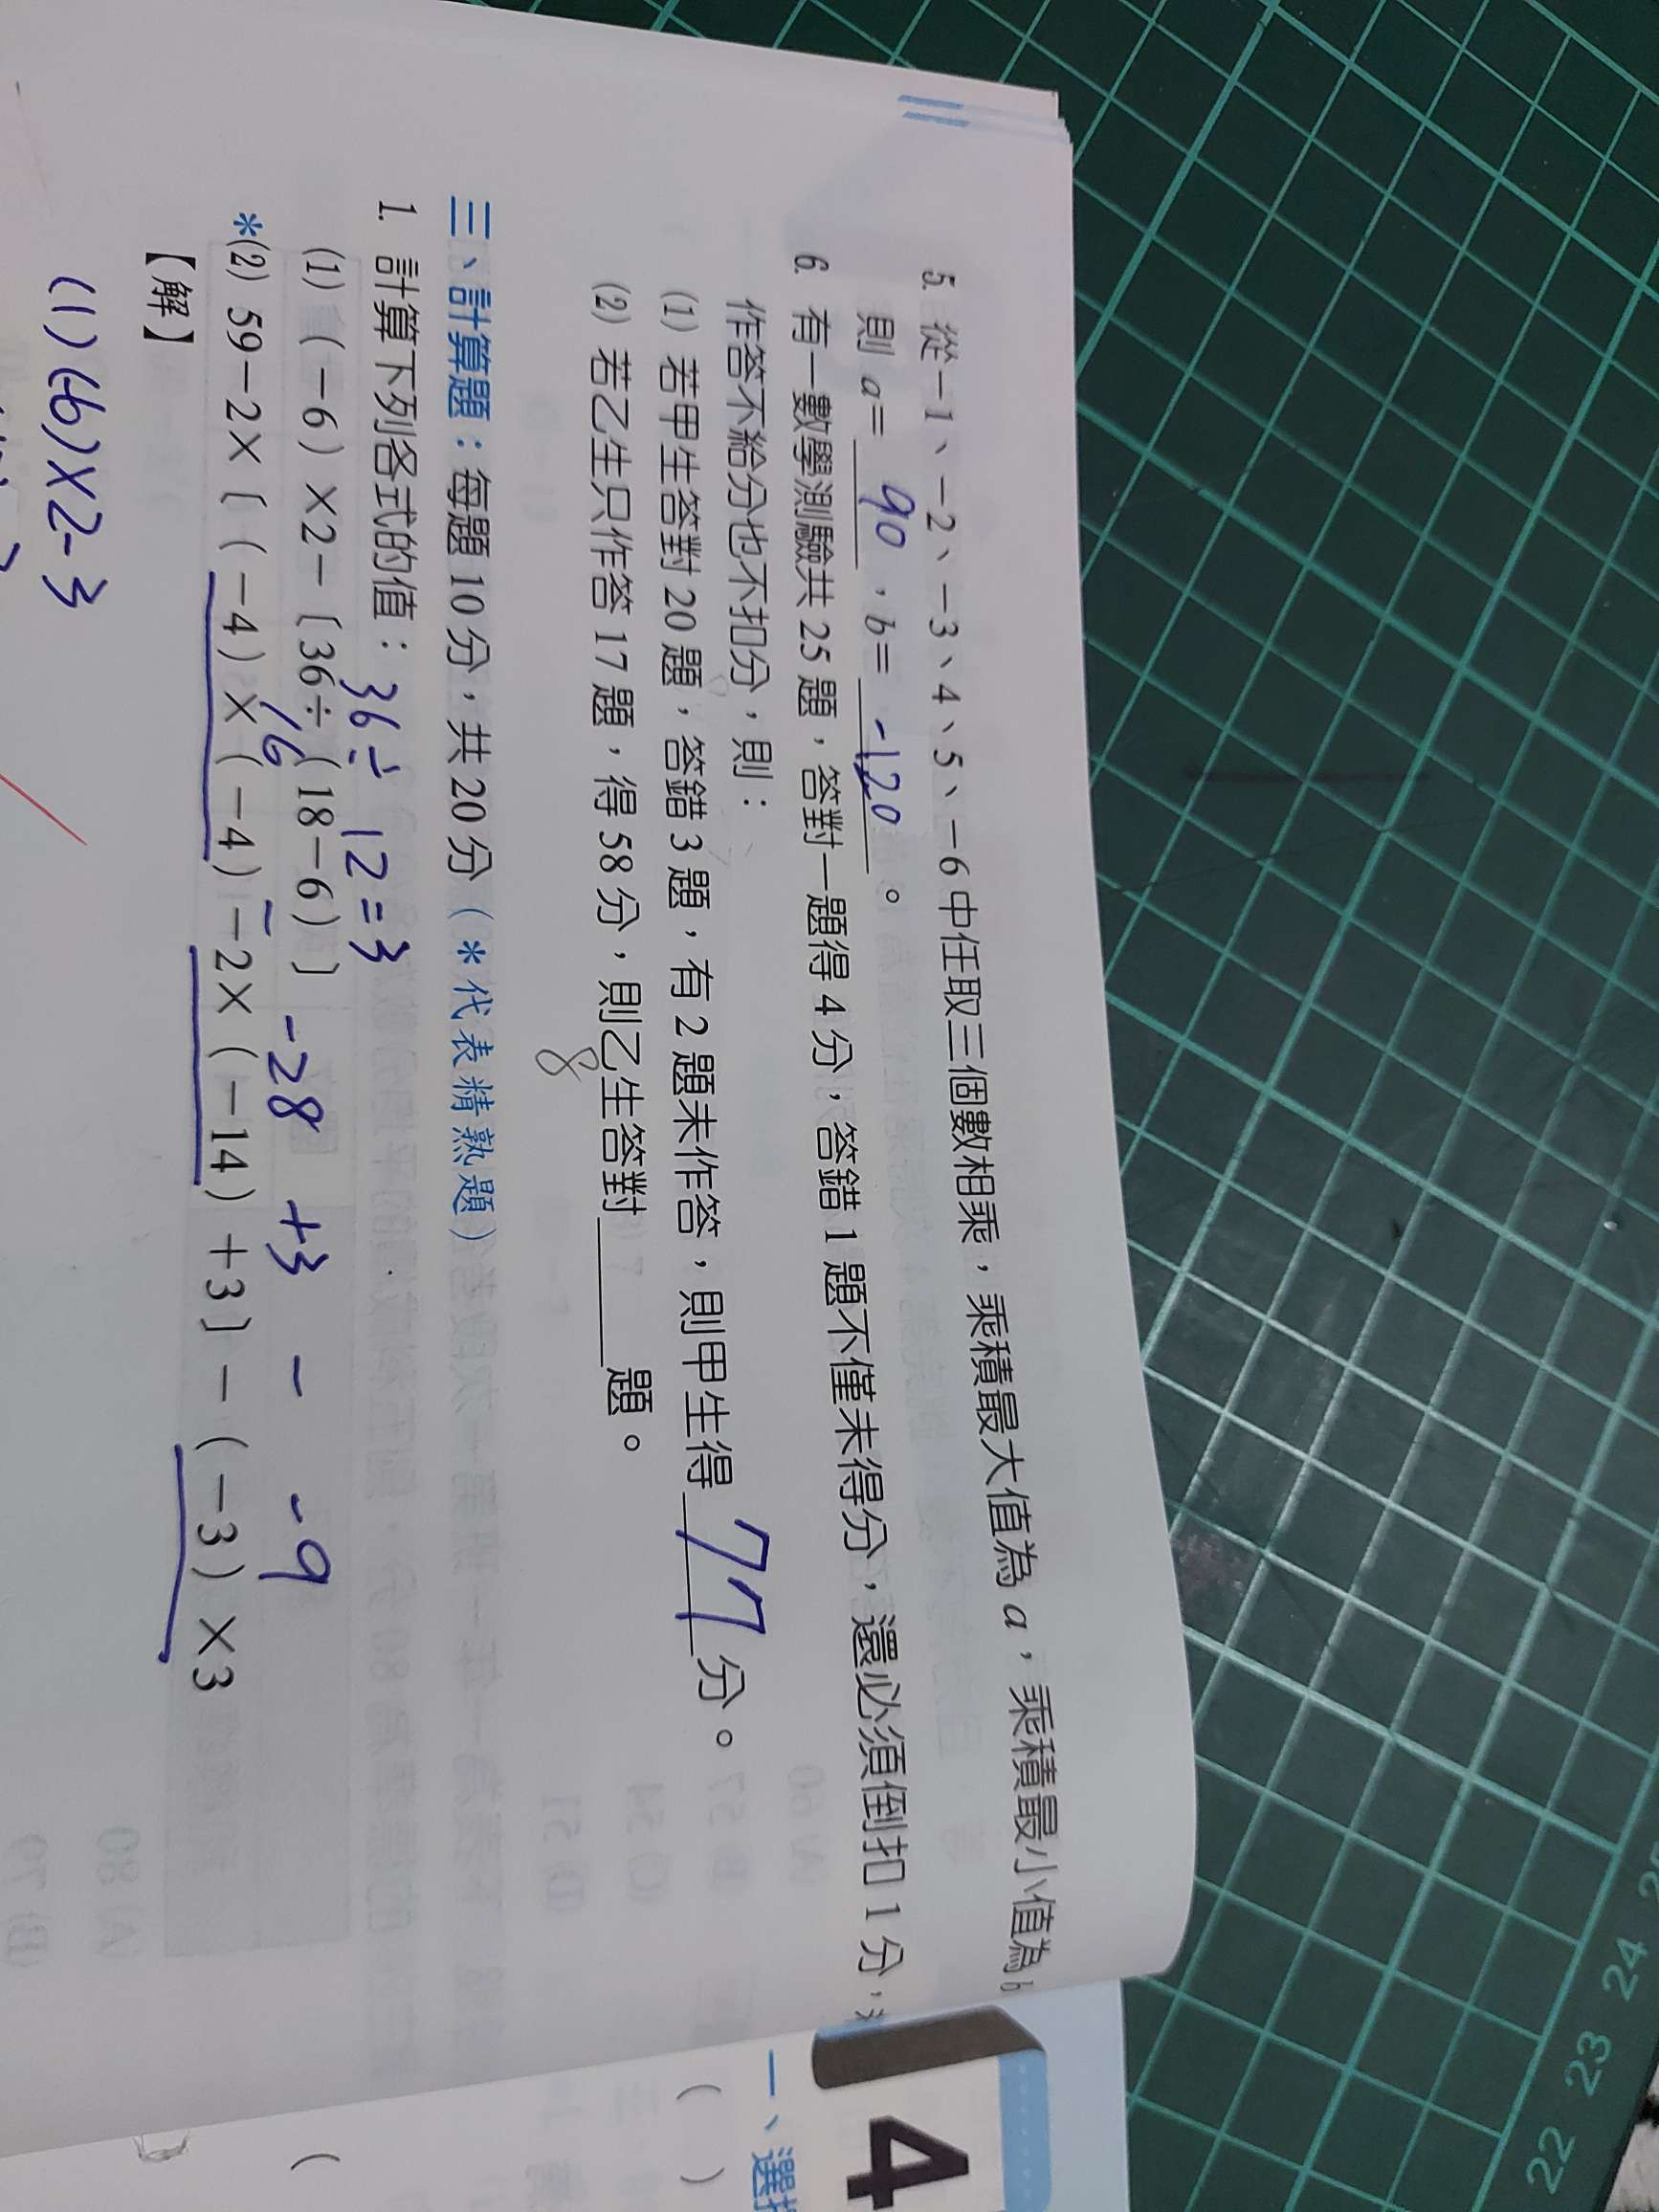 5. 從-1、-2、-3、4、5、-6中任取三個數相乘，乘積最大值為a，乘積最小值為b
則a= 90 ，b= -120 。
6. 有一數學測驗共25題，答對一題得4分，答錯1題不僅未得分，還必須倒扣1分，
作答不給分也不扣分，則：
(1) 若甲生答對20題，答錯3題，有2題未作答，則甲生得 77 分。
(2) 若乙生只作答17題，得58分，則乙生答對____題。
8
三、計算題：每題10分，共20分（*代表精熟題）
1. 計算下列各式的值：
36÷ 12=3
(1) (-6)×2-〔36÷(18-6)〕
16 - -28 +3 - -9
*(2) 59-2×〔(-4)×(-4)-2×(-14)+3〕-(-3)×3
【解】
(1)(-6)×2-3
4
一、選擇
( )
(
22 23 24 25